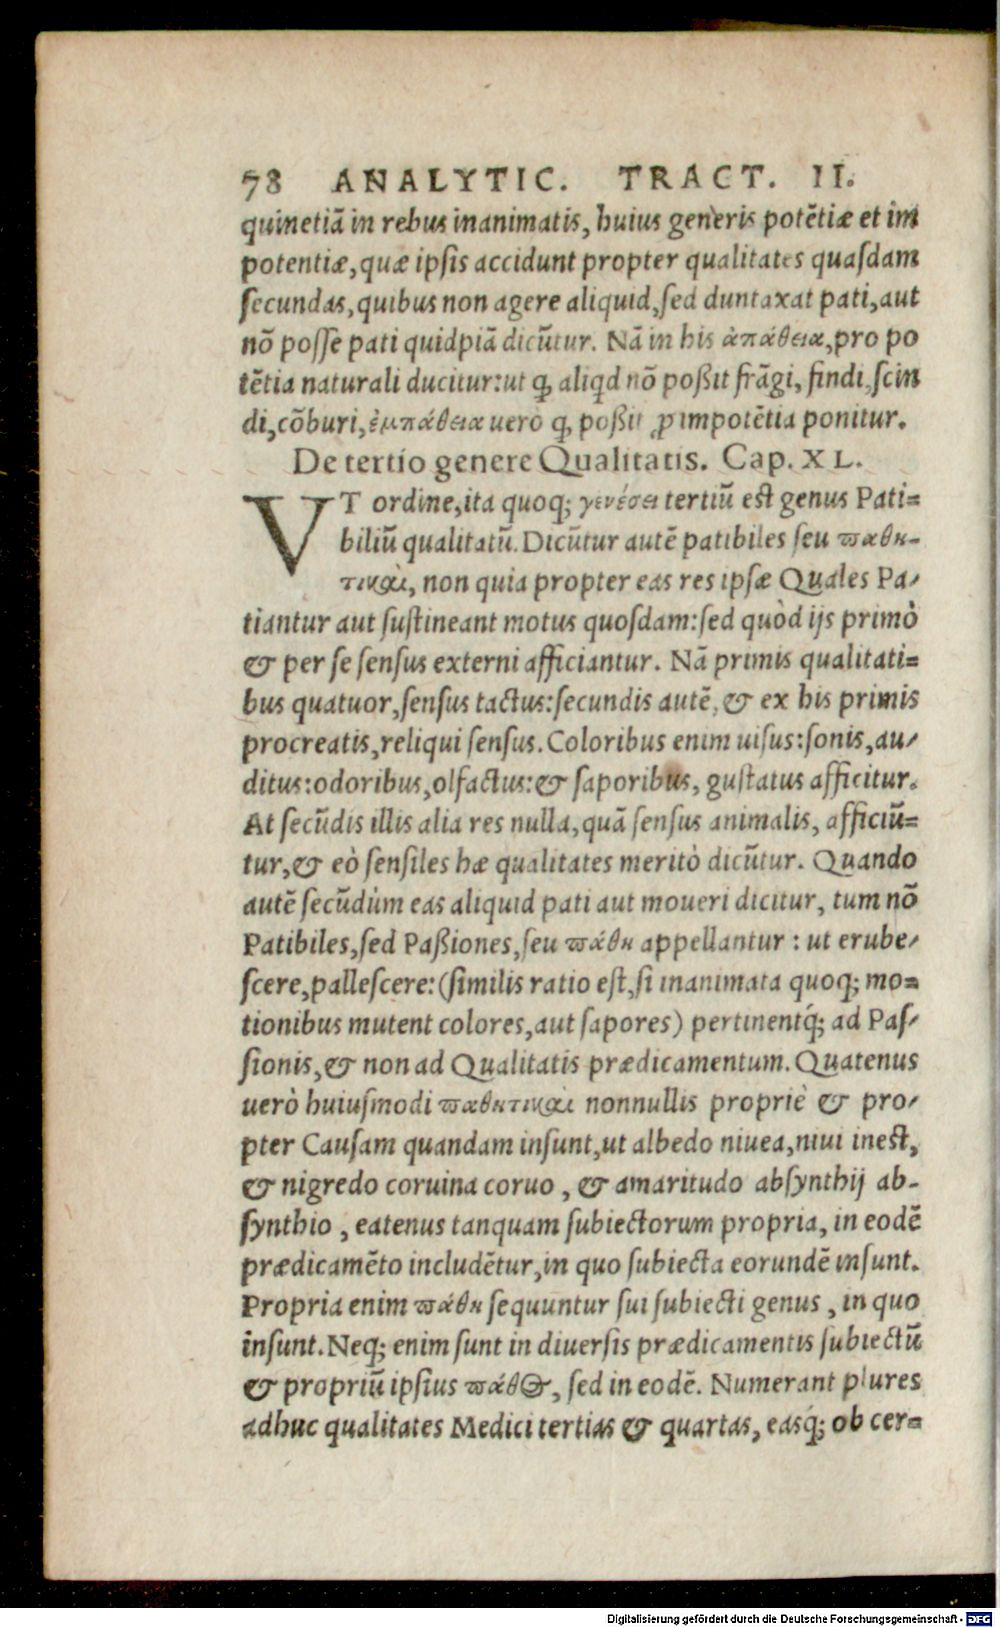 78 ANALYTIC. TRACT. II.
quinetiā in rebus inanimatis, huius generis potētiæ et im
potentiæ, quæ ipsis accidunt propter qualitates quasdam
secundas, quibus non agere aliquid, sed duntaxat pati, aut
nō posse pati quidpiā dicūtur. Nā in his ἀπάθεια, pro po
tētia naturali ducitur: ut ꝙ aliqd nō poßit frāgi, findi, scin
di, cōburi, ἐμπάθεια uero ꝙ poßit ꝓ impotētia ponitur.
De tertio genere Qualitatis. Cap. XL.
VT ordine, ita quoq; γενέσει tertiū est genus Pati=
biliū qualitatū. Dicūtur autē patibiles seu παθη-
τικαὶ, non quia propter eas res ipsæ Quales Pa/
tiantur aut sustineant motus quosdam: sed quòd ijs primò
& per se sensus externi afficiantur. Nā primis qualitati=
bus quatuor, sensus tactus: secundis autē, & ex his primis
procreatis, reliqui sensus. Coloribus enim uisus: sonis, au/
ditus: odoribus, olfactus: & saporibus, gustatus afficitur.
At secūdis illis alia res nulla, quā sensus animalis, afficiū=
tur, & eò sensiles hæ qualitates meritò dicūtur. Quando
autē secūdùm eas aliquid pati aut moueri dicitur, tum nō
Patibiles, sed Paßiones, seu πάθη appellantur : ut erube/
scere, pallescere: (similis ratio est, si inanimata quoq; mo=
tionibus mutent colores, aut sapores) pertinentq́; ad Pas/
sionis, & non ad Qualitatis prædicamentum. Quatenus
uerò huiusmodi παθητικαὶ nonnullis propriè & pro/
pter Causam quandam insunt, ut albedo niuea, niui inest,
& nigredo coruina coruo, & amaritudo absynthij ab-
synthio, eatenus tanquam subiectorum propria, in eodē
prædicamēto includētur, in quo subiecta eorundē insunt.
Propria enim πάθη sequuntur sui subiecti genus, in quo
insunt. Neq; enim sunt in diuersis prædicamentis subiectū
& propriū ipsius πάθος, sed in eodē. Numerant plures
adhuc qualitates Medici tertias & quartas, easq́; ob cer=
Digitalisierung gefördert durch die Deutsche Forschungsgemeinschaft - DFG